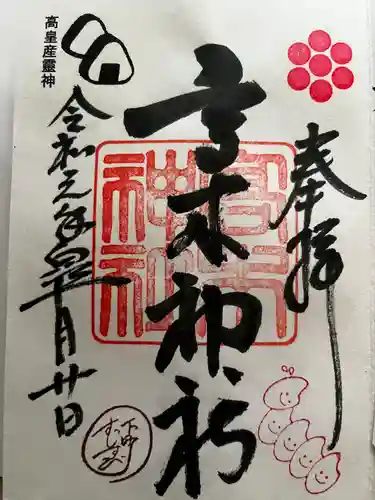 奉拝
高木神社
高木
神社
高皇産靈神
令和元年 月廿日